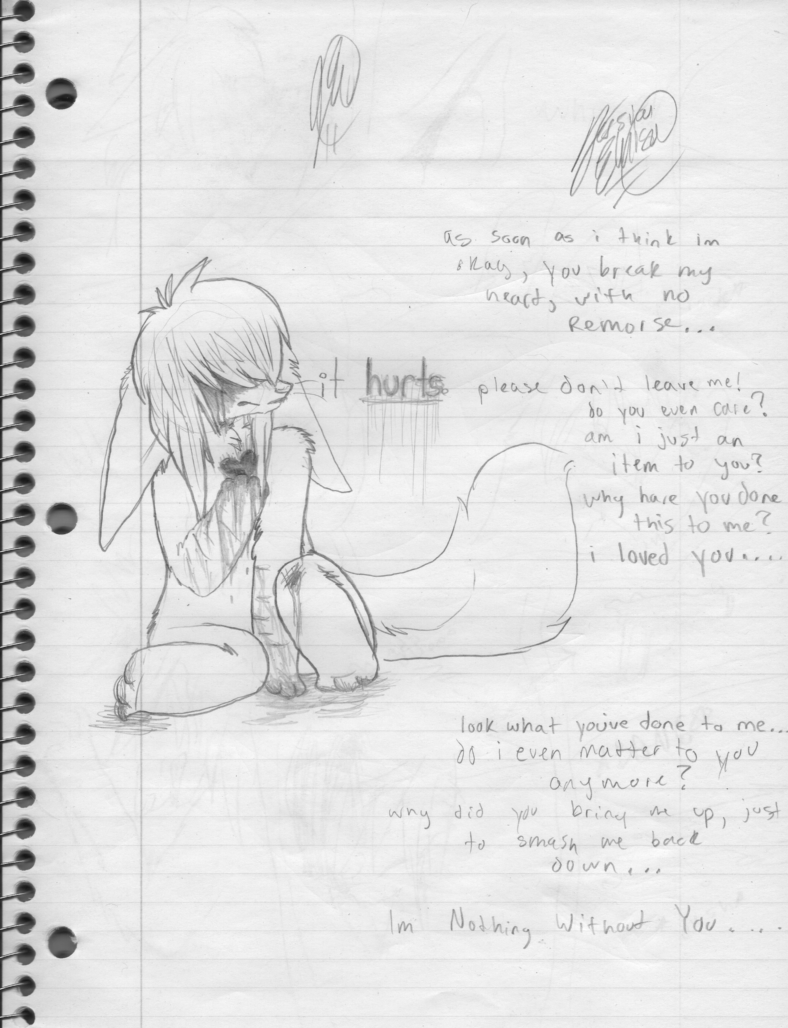 as soon as i think im
okay, you break my
heart, with no
Remorse...
it hurts.
please don't leave me!
do you even care?
am i just an
item to you?
why have you done
this to me?
i loved you....
look what you've done to me...
do i even matter to you
anymore?
why did you bring me up, just
to smash me back
down...
Im Nothing Without You....